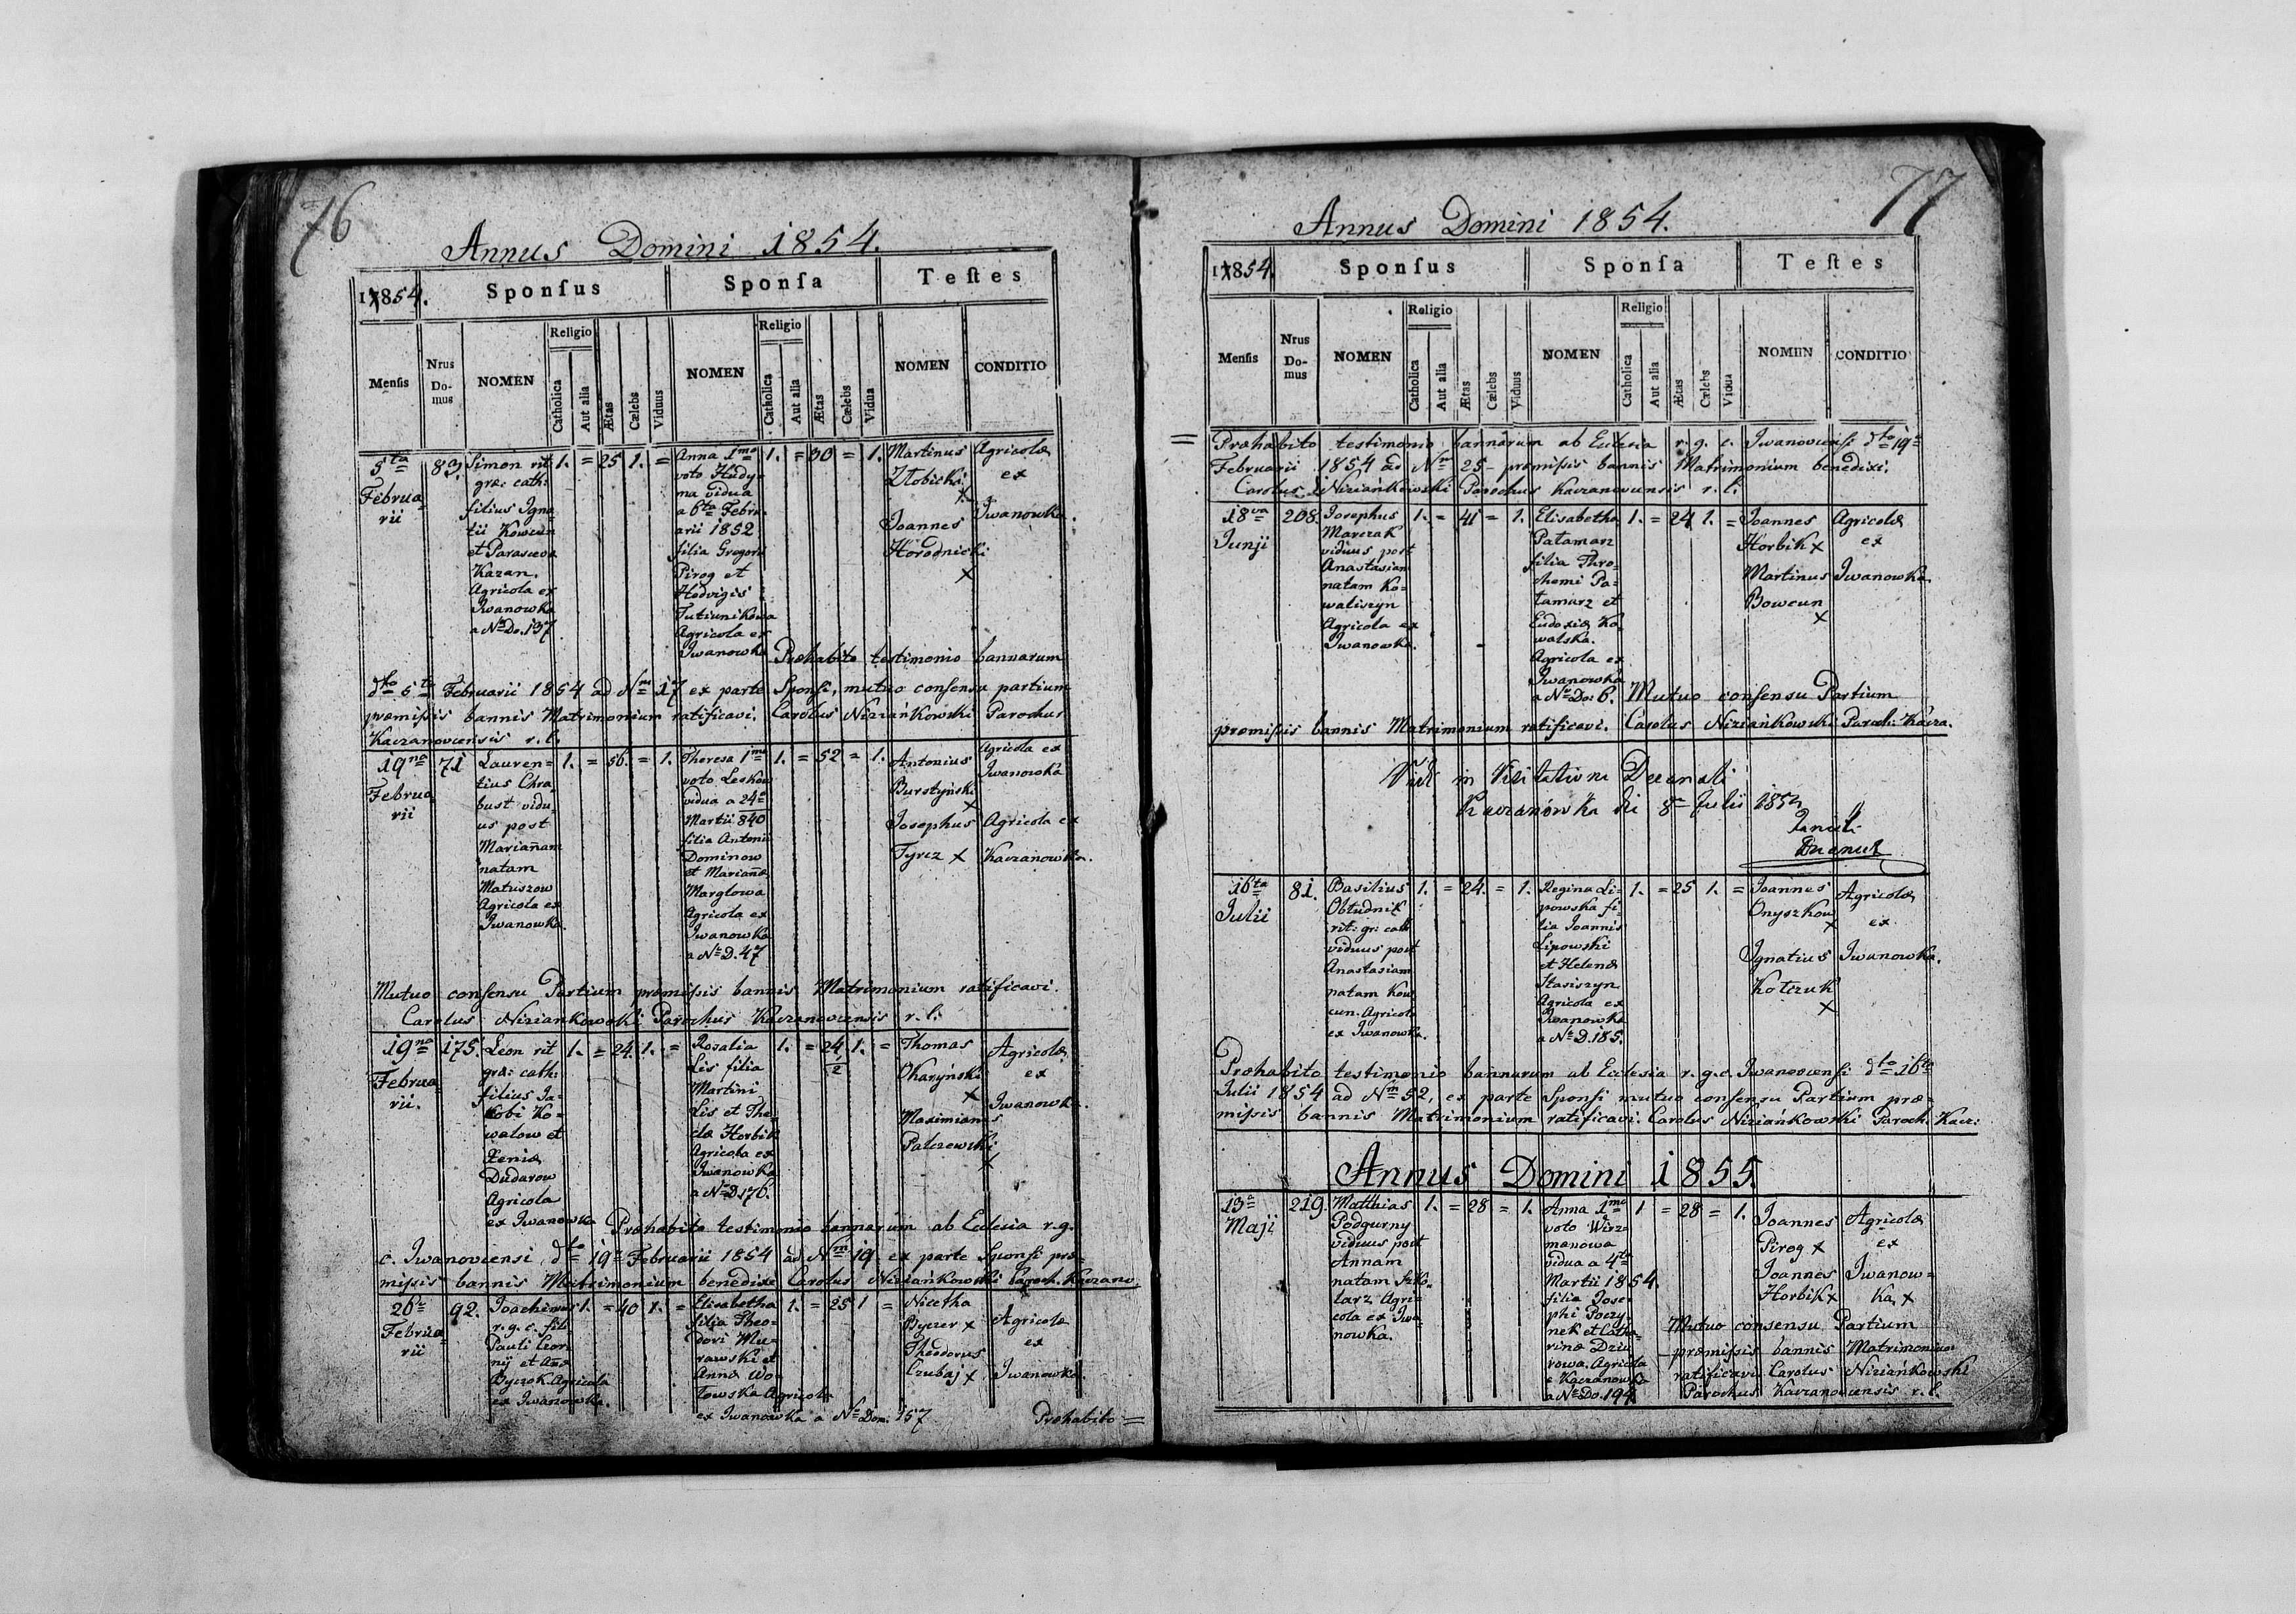 76
Annus Domini 1854.
1854.
Sponſus
Sponſa
Teſtes
Menſis
Nrus Do-mus
NOMEN
Religio
Catholica
Aut alia
Ætas
Cælebs
Viduus
NOMEN
Religio
Catholica
Aut alia
Ætas
Cælebs
Vidua
NOMEN
CONDITIO
5ta
Februa
rii
83.
Simon rit
græ: cath:
filius Igna-
tii Kowcun
et Parasceva
Kazan.
Agricola ex
Iwanowka
a Nro Do. 137
1. = 25 1. =
Anna 1mo
voto Hudy-
ma vidua
a 6ta Febru-
arii 1852
filia Gregorii
Pirog et
Hedvigis
Agricola ex
Iwanowka
1. = 30 = 1.
Martinus
Złobicki
x
Joannes
Horodnicki
x
Agricolæ
ex
Iwanowka.
Præhabito testimonio bannarum
dto 5ta Februarii 1854 ad Nm 17 ex parte Sponsi, mutuo consensu partium
præmiſsis bannis Matrimonium ratificavi. Carolus Niziańkowski Parochus
Kaczanovcensis r. l.
19na
Februa
rii
71
Lauren=
tius Chra-
bust vidu-
us post
Mariañam
natam
Matuszow
Agricola ex
Iwanowka.
1. = 56. = 1.
Theresa 1mo
voto Leskow
vidua a 24a
Martii 840
filia Antonii
Dominow
et Mariañæ
Marglowa
Agricola ex
Iwanowka
a Nro D. 47
1. = 52 = 1.
Antonius
Burstyński
x
Josephus
Tyrcz x
Agricola ex
Iwanowka
Agricola ex
Kaczanowka.
Mutuo consensu Partium præmiſsis bannis Matrimonium ratificavi.
Carolus Niziankowski Parochus Kaczanovcensis r. l.
19na
Februa
rii.
175.
Leon rit
græ: cath:
filius Ja-
kobi Ko-
walow et
Xeniæ
Dudarow
Agricola
ex Iwanowka
1. = 24. 1. =
Rosalia
Lis filia
Martini
Lis et The-
clæ Horbik
Agricola ex
Iwanowka
a Nro D. 176.
1. = 24 1/2 1. =
Thomas
Okaryński
x
Maximianus
Palczewski
x
Agricolæ
ex
Iwanowka.
Præhabito testimonio bannarum ab Eclesia r. g.
c. Iwanovcensi, dto 19a Februarii 1854 ad Nm 19 ex parte Sponsi præ-
miſsis bannis Matrimonium benedixi Carolus Niziańkowski Paroch. Kaczano
26ta
Februa
rii
92.
Joachimus
r. g. c. fil:
Pauli Leon-
nij et Añæ
Byczok. Agricola
ex Iwanowka.
1. = 40 1. =
Elisabetha
filia Theo-
dori Mu-
rawski et
Annæ Wo-
łowska Agricola
ex Iwanowka a Nro Dom. 157
1. = 25 1 =
Nicetha
Byczer x
Theodorus
Czubaj x
Agricolæ
ex
Iwanowka.
Præhabito =
77
Annus Domini 1854.
1854.
Sponſus
Sponſa
Teſtes
Menſis
Nrus Do-mus
NOMEN
Religio
Catholica
Aut alia
Ætas
Cælebs
Viduus
NOMEN
Religio
Catholica
Aut alia
Ætas
Cælebs
Vidua
NOMEN
CONDITIO
= Præhabito testimonio bannarum ab Eclesia r. g. c. Iwanovcensi dto 19a
Februarii 1854 ad Nm 25 - præmiſsis bannis Matrimonium benedixi.
Carolus Niziańkowski Parochus Kaczanovcensis r. l.
18va
Junji
208.
Josephus
Marczak
viduus post
Anastasiam
natam Ko-
waliszyn
Agricola ex
Iwanowka.
1. = 41 = 1.
Elisabetha
Patamarz
filia Thro-
chemi Pa-
tamarz et
Eudoxiæ Ko-
walska.
Agricola ex
Iwanowka
a Nro Do: 6.
1. = 24 1. =
Joannes
Horbik x
Martinus
Bowcun
x
Agricolæ
ex
Iwanowka.
Mutuo consensu Partium
præmiſsis bannis Matrimonium ratificavi. Carolus Niziańkowski Paroch: Kacza.
Vidi in Visitatione Decanali
Kaczanówka die 8 Julii 1854
16ta
Julii
81.
Basilius
Obłudnik
rit: gr: cath
viduus post
Anastasiam
natam Kow
cun. Agricola
ex Iwanowka.
1. = 24. = 1.
Regina Li-
powska fi-
lia Joannis
Lipowski
et Helenæ
Stasiszyn
Agricola ex
Iwanowka
a Nro D. 185.
1. = 25 1. =
Joannes
Onyszkow
x
Ignatius
Kotczuk
x
Agricolæ
ex
Iwanowka.
Præhabito testimonio bannarum ab Eclesia r. g. c. Iwanovcensi dto 16ta
Julii 1854 ad Nm 52, ex parte Sponsi mutuo consensu Partium præ-
miſsis bannis Matrimonium ratificavi. Carolus Niziańkowski Paroch. Kacz:
Annus Domini 1855.
13a
Maji
219.
Matthias
Podgurny
viduus post
Annam
natam Szko-
larz Agri-
cola ex Iwa-
nowka.
1. = 28 = 1.
Anna 1mo
voto Wirz-
manowa
vidua a 4ta
Martii 1854.
filia Jose-
phi Poczy-
nek et Catha-
rinæ Dziu-
rowa. Agricola
e Kaczanowka
a Nro Do. 194
1 = 28 = 1.
Joannes
Pirog x
Joannes
Horbik x
Agricolæ
ex
Iwanow=
ka, x
Mutuo consensu Partium
præmiſsis bannis Matrimonium
ratificavi Carolus Niziańkowski
Parochus Kaczanovcensis r. l.